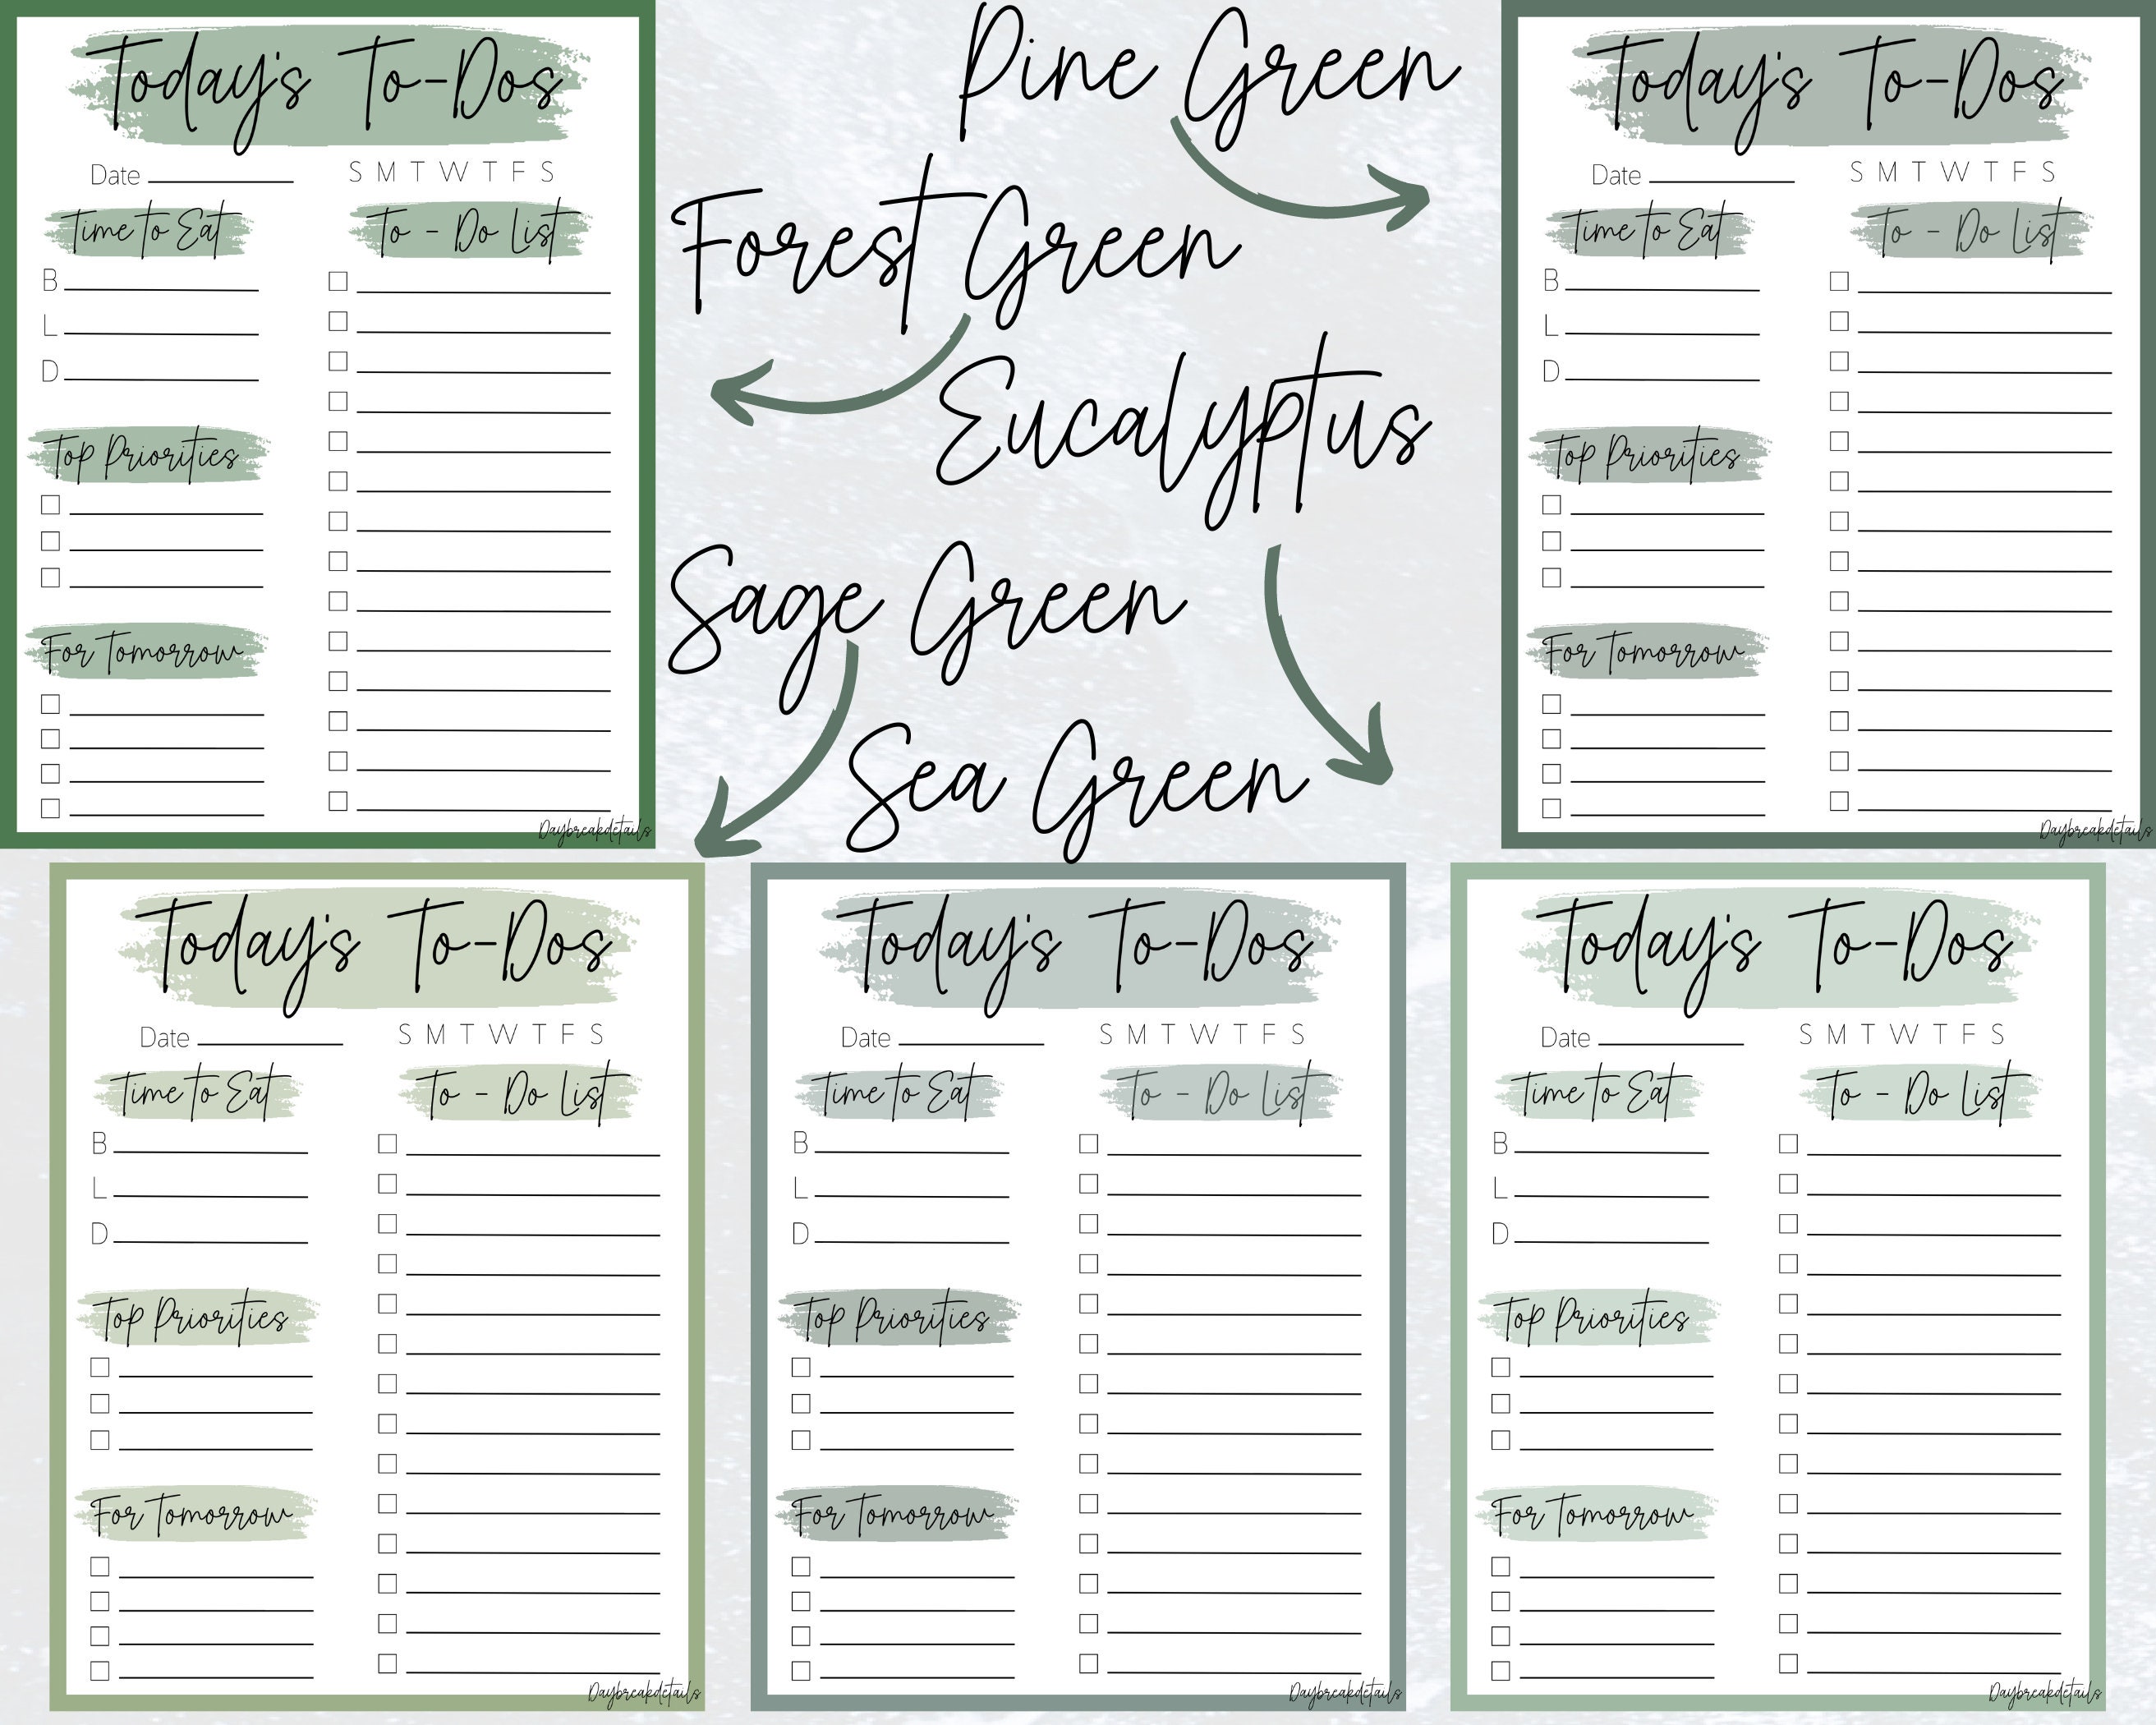 Today's To-Dos
Date
S M T W T F S
Time to Eat
B
L
D
Top Priorities
For Tomorrow
To - Do List
Daybreakdetails
Pine Green
Forest Green
Eucalyptus
Sage Green
Sea Green
Today's To-Dos
Date
S M T W T F S
Time to Eat
B
L
D
Top Priorities
For Tomorrow
To - Do List
Daybreakdetails
Today's To-Dos
Date
S M T W T F S
Time to Eat
B
L
D
Top Priorities
For Tomorrow
To - Do List
Daybreakdetails
Today's To-Dos
Date
S M T W T F S
Time to Eat
B
L
D
Top Priorities
For Tomorrow
To - Do List
Daybreakdetails
Today's To-Dos
Date
S M T W T F S
Time to Eat
B
L
D
Top Priorities
For Tomorrow
To - Do List
Daybreakdetails